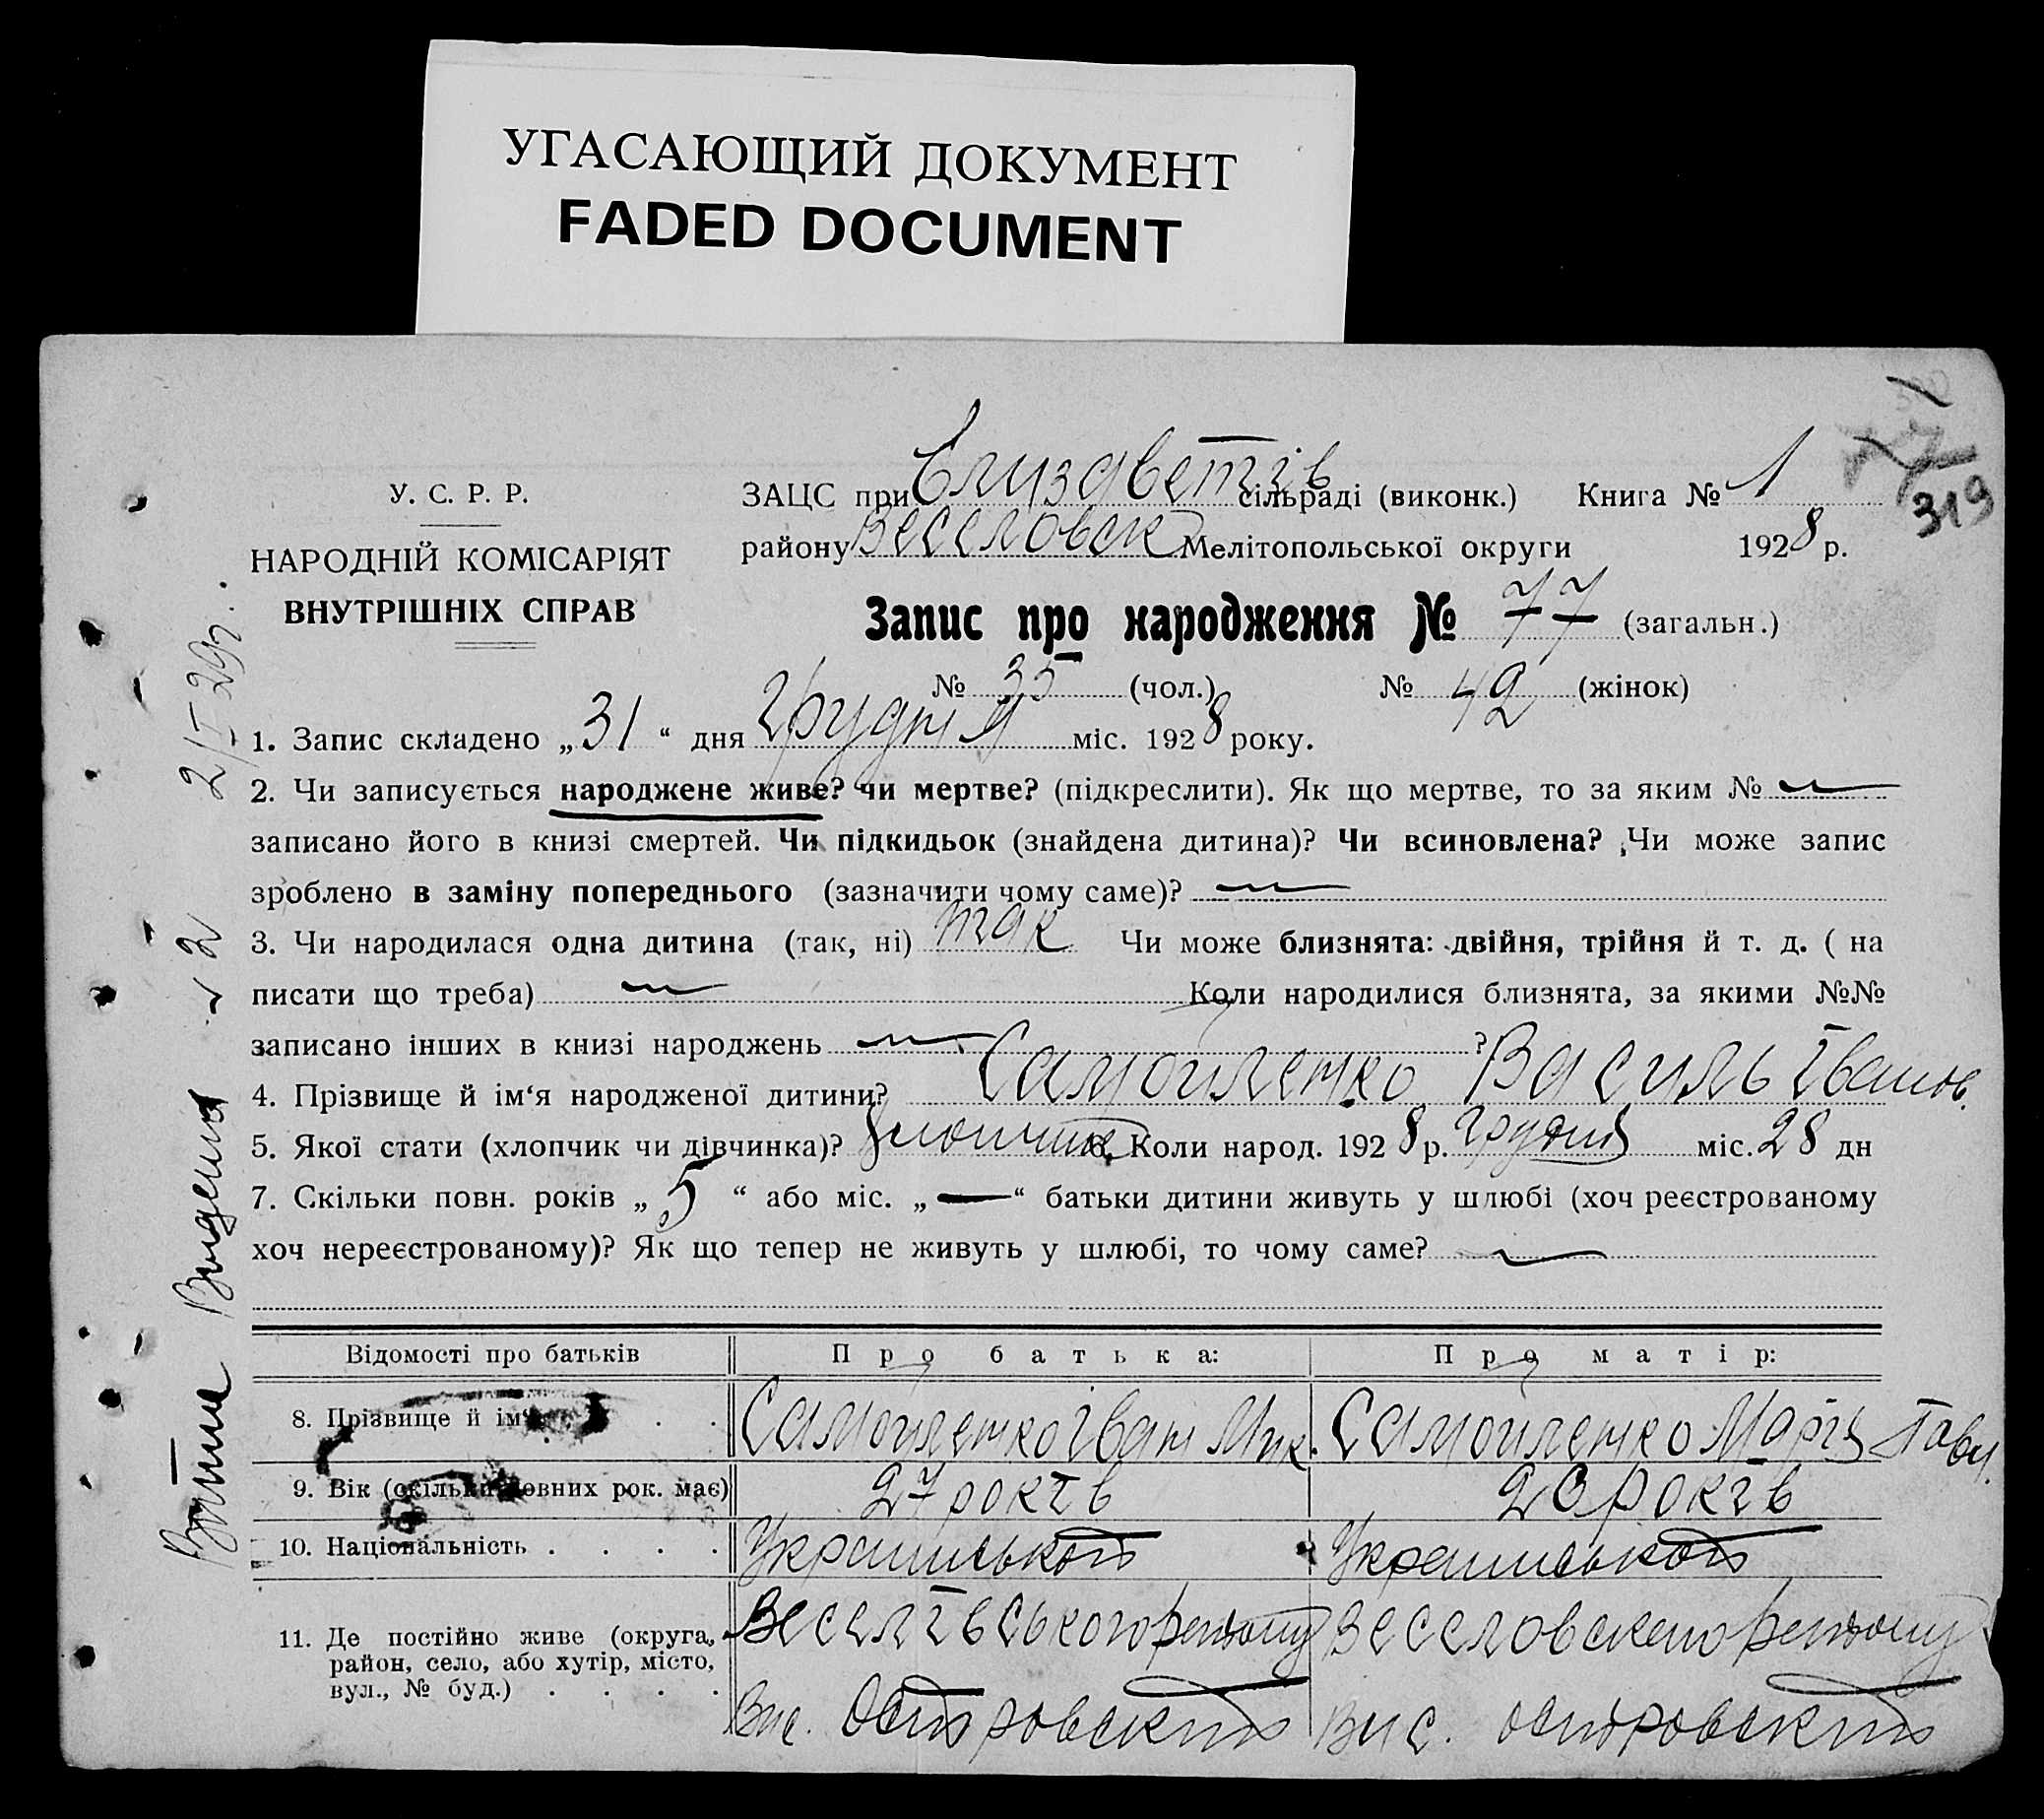 УГАСАЮЩИЙ ДОКУМЕНТ
FADED DOCUMENT
319
У. С. Р. Р.
НАРОДНІЙ КОМІСАРІЯТ
ВНУТРІШНІХ СПРАВ
ЗАЦС при Єлизаветів сільраді (виконк.) Книга № 1
району Веселовск Мелітопольської округи 1928 р.
Запис про народження № 77 (загальн.)
№ 35 (чол.) № 42 (жінок)
1. Запис складено „31“ дня грудня міс. 1928 року.
2. Чи записується народжене живе? чи мертве? (підкреслити). Як що мертве, то за яким №
записано його в книзі смертей. Чи підкидьок (знайдена дитина)? Чи всиновлена? Чи може запис
зроблено в заміну попереднього (зазначити чому саме)?
3. Чи народилася одна дитина (так, ні) так Чи може близнята: двійня, трійня й т. д. ( на
писати що треба) Коли народилися близнята, за якими №№
записано інших в книзі народжень ?
4. Прізвище й ім‘я народженої дитини? Самойленко Василь Іванов.
5. Якої стати (хлопчик чи дівчинка)? хлопчик 6. Коли народ. 1928 р. грудня міс. 28 дн
7. Скільки повн. років „5“ або міс. „—“ батьки дитини живуть у шлюбі (хоч реєстрованому
хоч нереєстрованому)? Як що тепер не живуть у шлюбі, то чому саме?
Відомості про батьків Про батька: Про матір:
8. Прізвище й ім‘я Самойленко Іван Мик. Самойленко Марія Павл.
9. Вік (скільки повних рок. має) 27 років 23 років
10. Національність . . . . Української Української
11. Де постійно живе (округа, Веселівського району Веселовского району
район, село, або хутір, місто,
вул., № буд.) . . . . Вис. Островский Вис. островский
Витяг Видана 2 2/I 29 г.